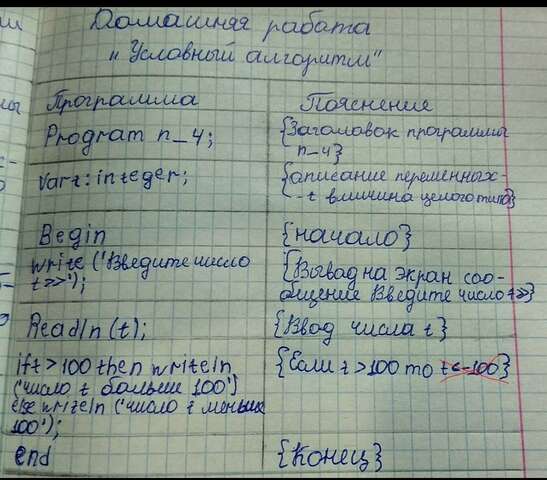 Домашняя работа
„Условный алгоритм"
Программа
Пояснение
Program n_4;
{Заголовок программы
n_4}
var t: integer;
{описание переменных-
-t вличина целого типа}
Begin
{начало}
write ('Введите число
t>>');
{Вывод на экран соо-
бщение Введите число t>>}
Readln (t);
{Ввод числа t}
if t > 100 then writeln
('число t больше 100')
else writeln ('число t меньше
100');
{Если t > 100 то t<-100}
end
{Конец}